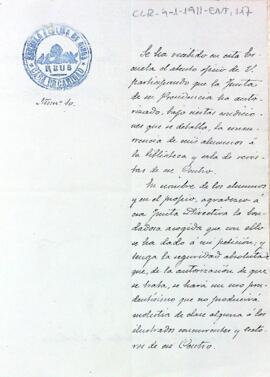 CLR-4-1-1911-ENT, 117
REUS
Núm.º 10.
Se ha recibido en esta Es-
cuela el atento oficio de V.
participando que la Junta
de su Presidencia ha auto-
rizado, bajo ciertas condicio-
nes que se detalla, la concu-
rrencia de mis alumnos á
la biblioteca y sala de revis-
tas de ese Centro.
En nombre de los alumnos
y en el propio, agradezco á
esa Junta Directiva la bon-
dadosa acogida que con ello
se ha dado á mi petición; y
tenga la seguridad absoluta
que, de la autorización de que
se trata, se hará un uso pru-
dentísimo que no producirá
molestia de clase alguna á los
ilustrados concurrentes y socios
de ese Centro.